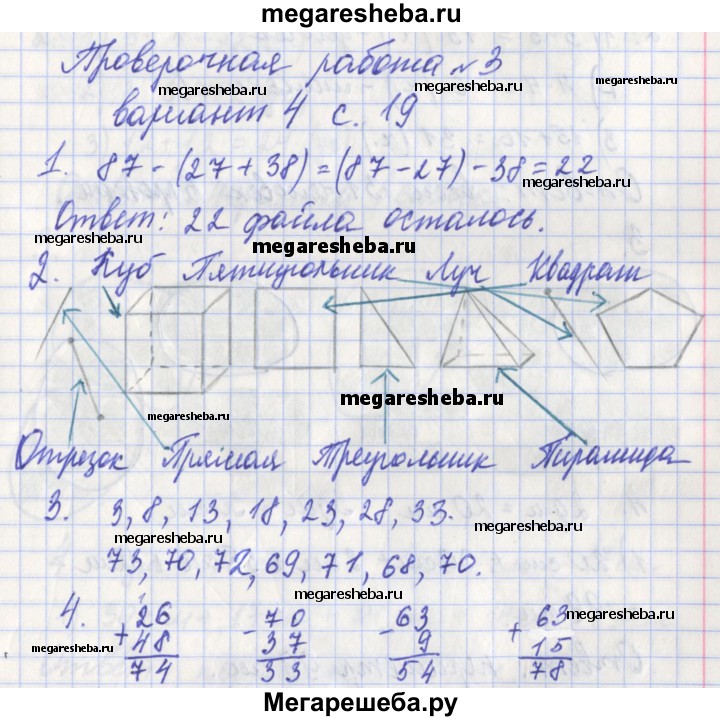 megaresheba.ru
Проверочная работа №3
megaresheba.ru
megaresheba.ru
вариант 4 с. 19
1. 87 - (27 + 38) = (87 - 27) - 38 = 22
megaresheba.ru
megaresheba.ru
Ответ: 22 файла осталось.
megaresheba.ru
megaresheba.ru
2. Куб Пятиугольник Луч Квадрат
megaresheba.ru
megaresheba.ru
Отрезок Прямая Треугольник Пирамида
3. 3, 8, 13, 18, 23, 28, 33.
megaresheba.ru
megaresheba.ru
73, 70, 72, 69, 71, 68, 70.
4. 26 + 48 = 74
70 - 37 = 33
63 - 9 = 54
63 + 15 = 78
megaresheba.ru
megaresheba.ru
megaresheba.ru
Мегарешеба.ру